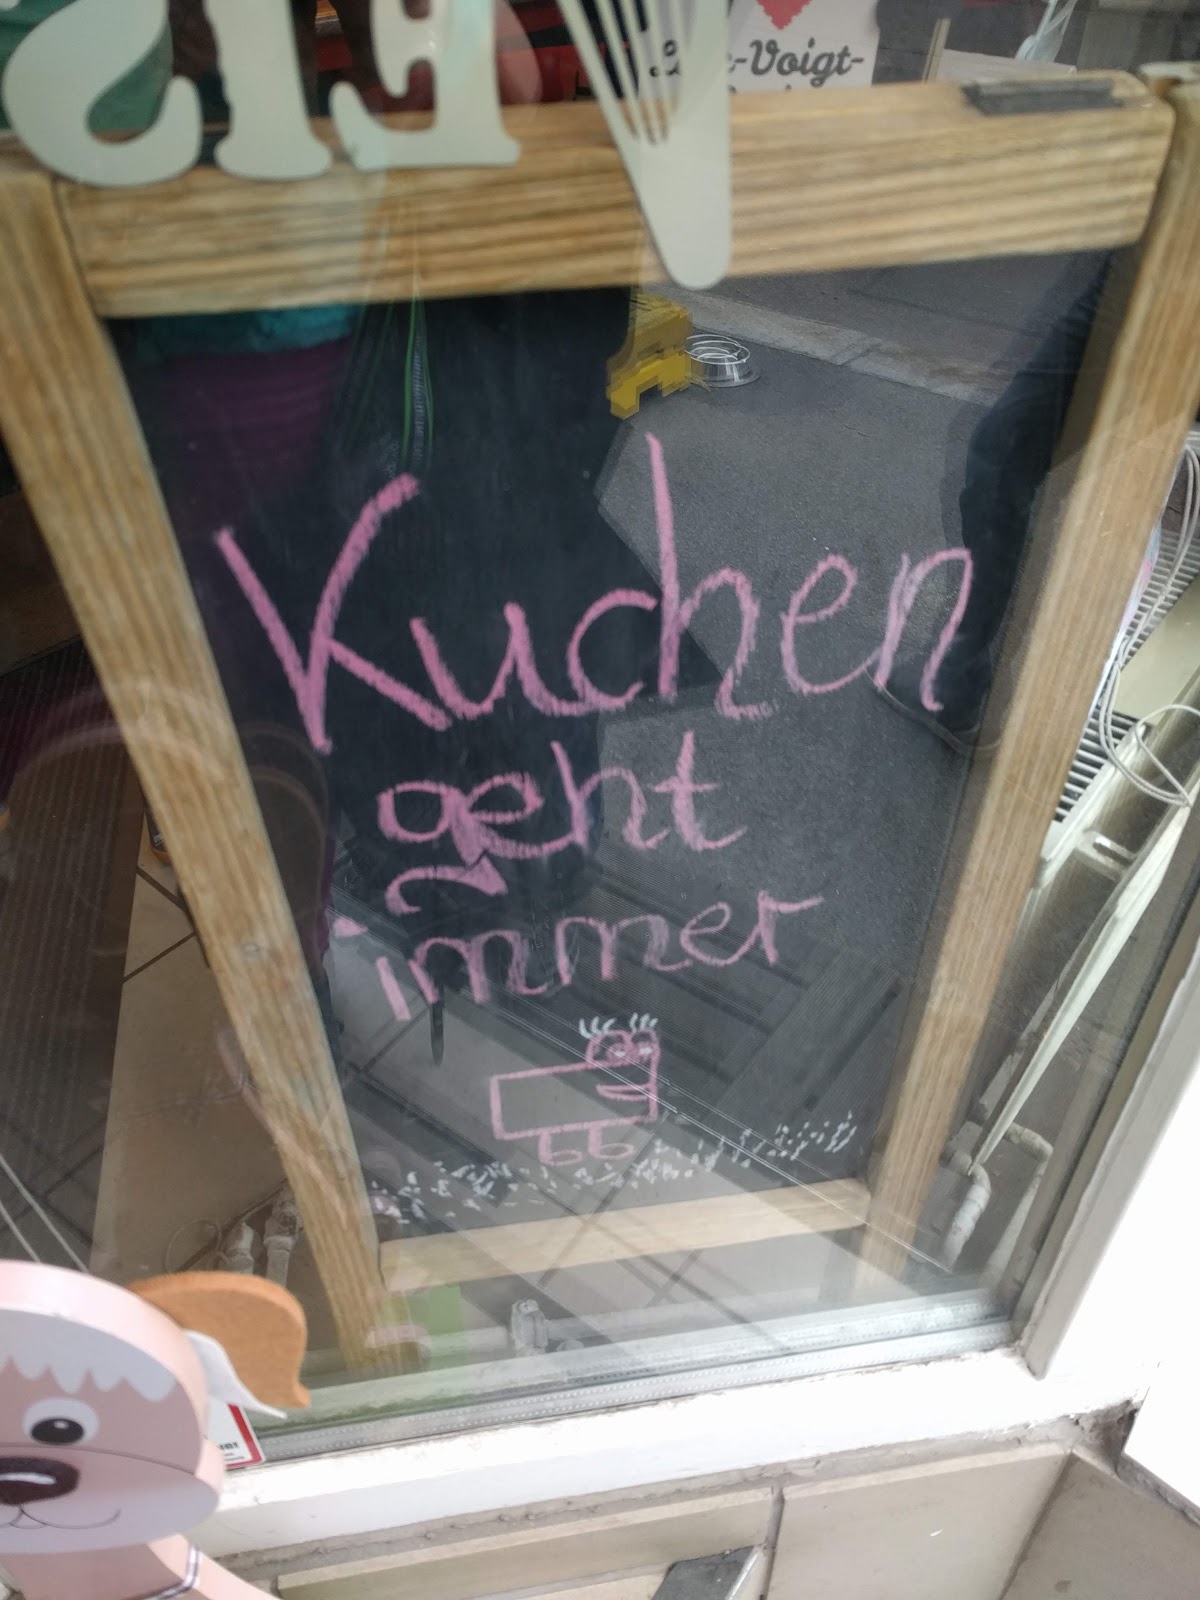 EIS
-Voigt-
Kuchen
geht
immer